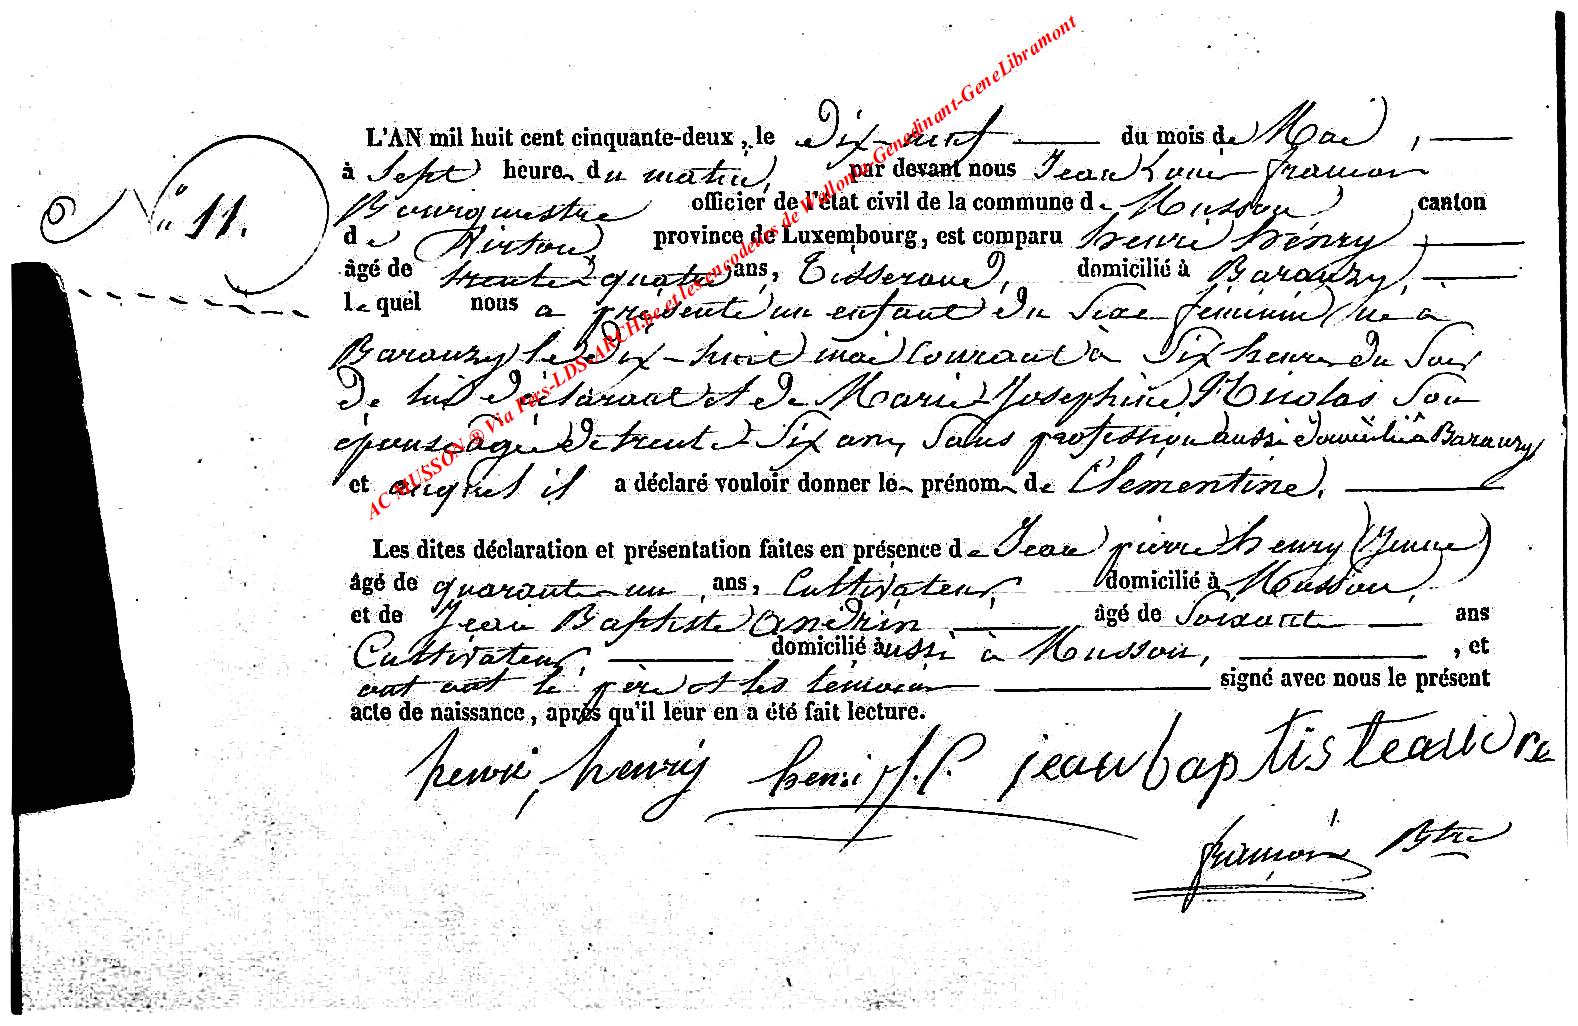 L'AN mil huit cent cinquante-deux, le Dix-neuf du mois de Mai,
N° 11.
à Sept heure du matin, par devant nous Jean Louis françois
Bourgmestre officier de l'état civil de la commune de Musson canton
de Virton, province de Luxembourg, est comparu henri henry,
âgé de trente-quatre ans, Tisserand, domicilié à Baranzy,
lequel nous a présenté un enfant du Sexe féminin né à
Baranzy le Dix-huit mai Courant à Six heures du Soir
de lui déclarant et de Marie-Josephine Nicolas Son
épouse âgée de trente Six ans, Sans profession aussi domiciliée à Baranzy
et auquel il a déclaré vouloir donner le prénom de Clementine.
Les dites déclaration et présentation faites en présence de Jean pierre henry (Jeune)
âgé de quarante-un ans, Cultivateur, domicilié à Musson,
et de Jean Baptiste andrin âgé de Soixante ans
Cultivateur, domicilié aussi à Musson, , et
ont le père et les temoins signé avec nous le présent
acte de naissance, après qu'il leur en a été fait lecture.
henri, henry henri J. P. jean baptiste
françois Btre
AC MUSSON ® Via Pers-LDS-ARCH.be et les encodeurs de Wallonia-Genedinant-GeneLibramont